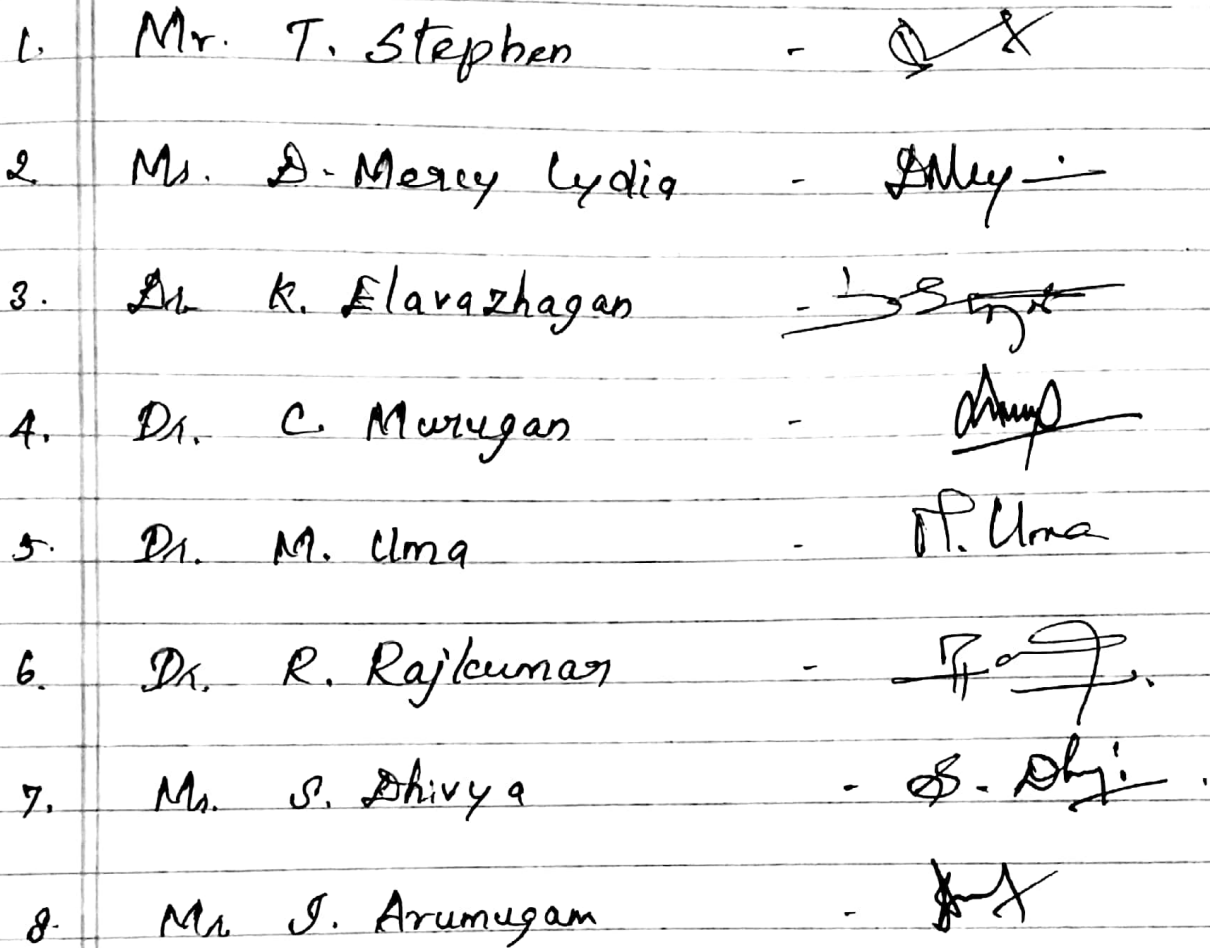 1. Mr. T. Stephen -
2 Ms. D. Mercy Lydia -
3. Dr. K. Elavazhagan -
4. Dr. C. Murugan -
5. Dr. M. Uma - M. Uma
6. Dr. R. Rajkumar -
7. Ms. S. Dhivya - S. Dhy
8. Mr I. Arumugam -